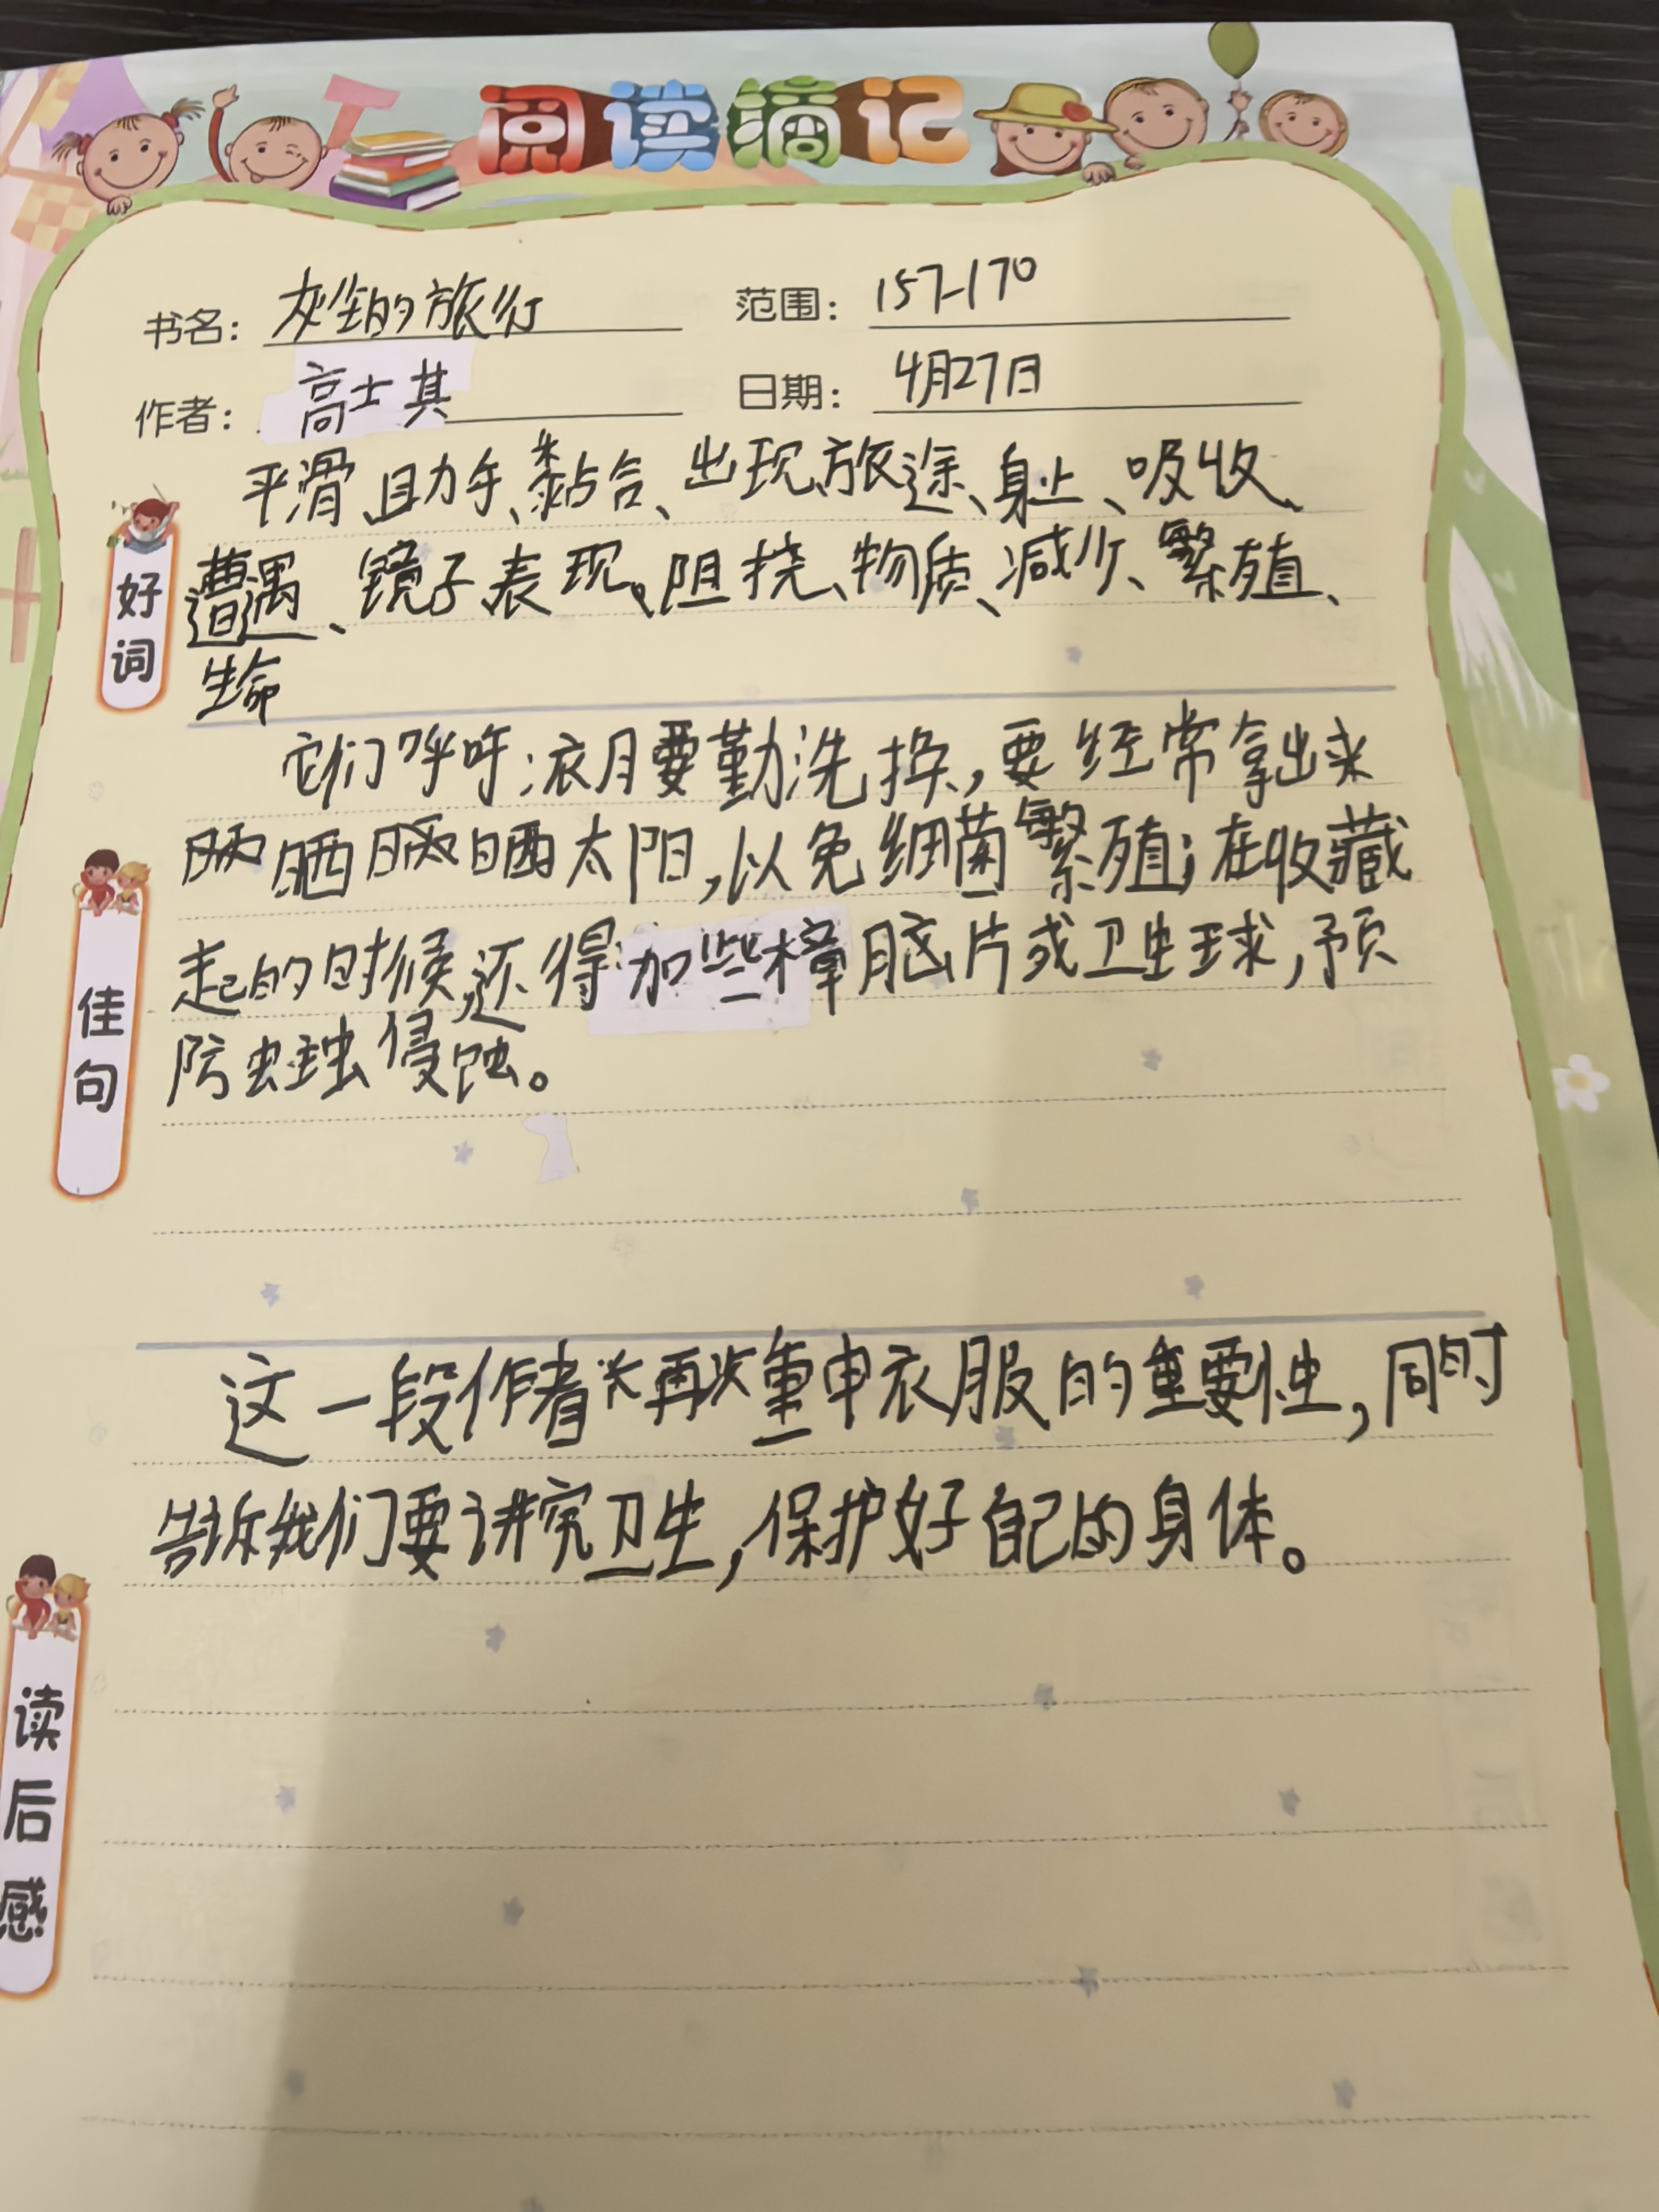 阅读摘记
书名：灰尘的旅行 范围：157-170
作者：高士其 日期：4月27日
好词
平滑、助手、黏合、出现、旅途、身上、吸收、
遭遇、镜子、表现、阻挠、物质、减少、繁殖、
生命
佳句
它们呼吁：衣月要勤洗换，要经常拿出来
晒晒晒晒太阳，以免细菌繁殖；在收藏
起的时候，还得加些樟脑片或卫生球，预
防虫蛀虫侵蚀。
读后感
这一段作者再次重申衣服的重要性，同时
告诉我们要讲究卫生，保护好自己的身体。